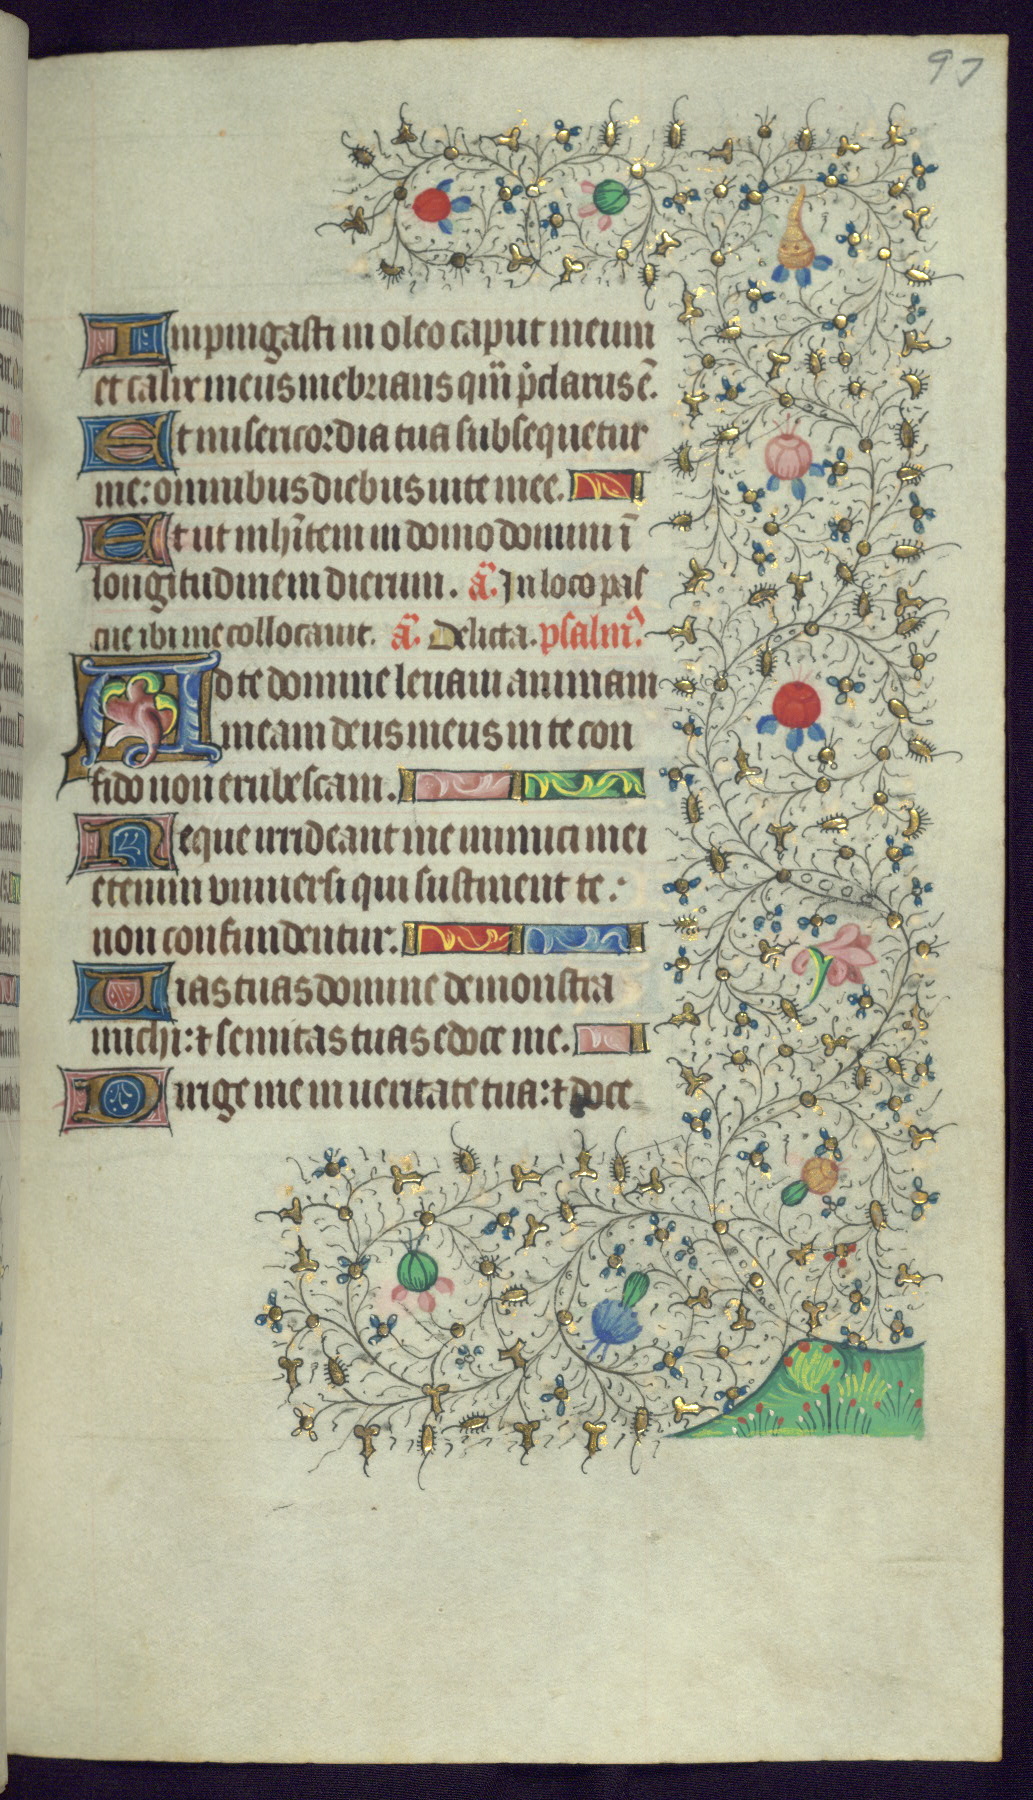 97
Inpingasti in oleo caput meum
et calix meus inebrians qm̄ p̄clarus ē.
Et misericordia tua subsequetur
me: omnibus diebus uite mee.
Et ut inhītem in domo domini ī
longitudinem dierum. a͞. In loco pas
cue ibi me collocauit. a͞. Delicta. psalm̄⁹
Ad te domine leuaui animam
meam deus meus in te con
fido non erubescam.
Neque irrideant me inimici mei
etenim vniuersi qui sustinent te:
non confundentur:
Uias tuas domine demonstra
michi: ⁊ semitas tuas edoce me.
Dirige me in ueritate tua: ⁊ doce